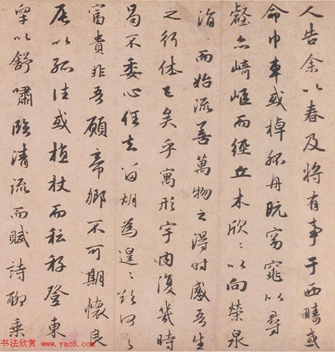 人告余以春及將有事于西疇或
命巾車或棹孤舟既窈窕以尋
壑亦崎嶇而經丘木欣〻以向榮泉
涓〻而始流善萬物之得時感吾生
之行休已矣乎寓形宇內復幾時
曷不委心任去留胡為遑〻欲何之
富貴非吾願帝鄉不可期懷良
辰以孤往或植杖而耘耔登東
皋以舒嘯臨清流而賦詩聊乘
书法欣赏
www.yac8.com